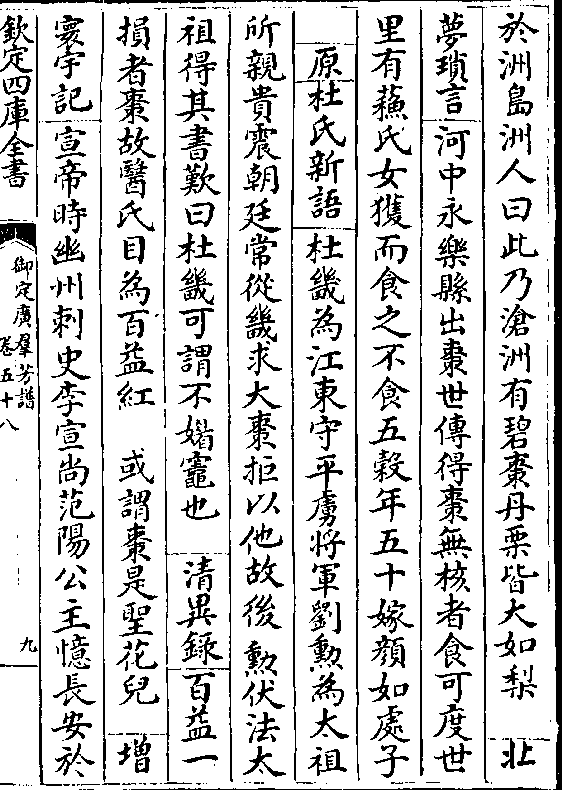 於洲島洲人曰此乃滄洲有碧棗丹栗皆大如梨　北
夢瑣言　河中永樂縣出棗世傳得棗無核者食可度世
里有蘓氏女獲而食之不食五穀年五十嫁顔如處子
原杜氏新語　杜畿為江東守平虜將軍劉勲為太祖
所親貴震朝廷常從畿求大棗拒以他故後勲伏法太
祖得其書歎曰杜畿可謂不媚竈也　清異錄　百益一
損者棗故醫氏目為百益紅　或謂棗是聖花兒　增
寰宇記　宣帝時幽州刺史李宣尚范陽公主憶長安於
欽定四庫全書
御定廣羣芳譜
卷五十八
九